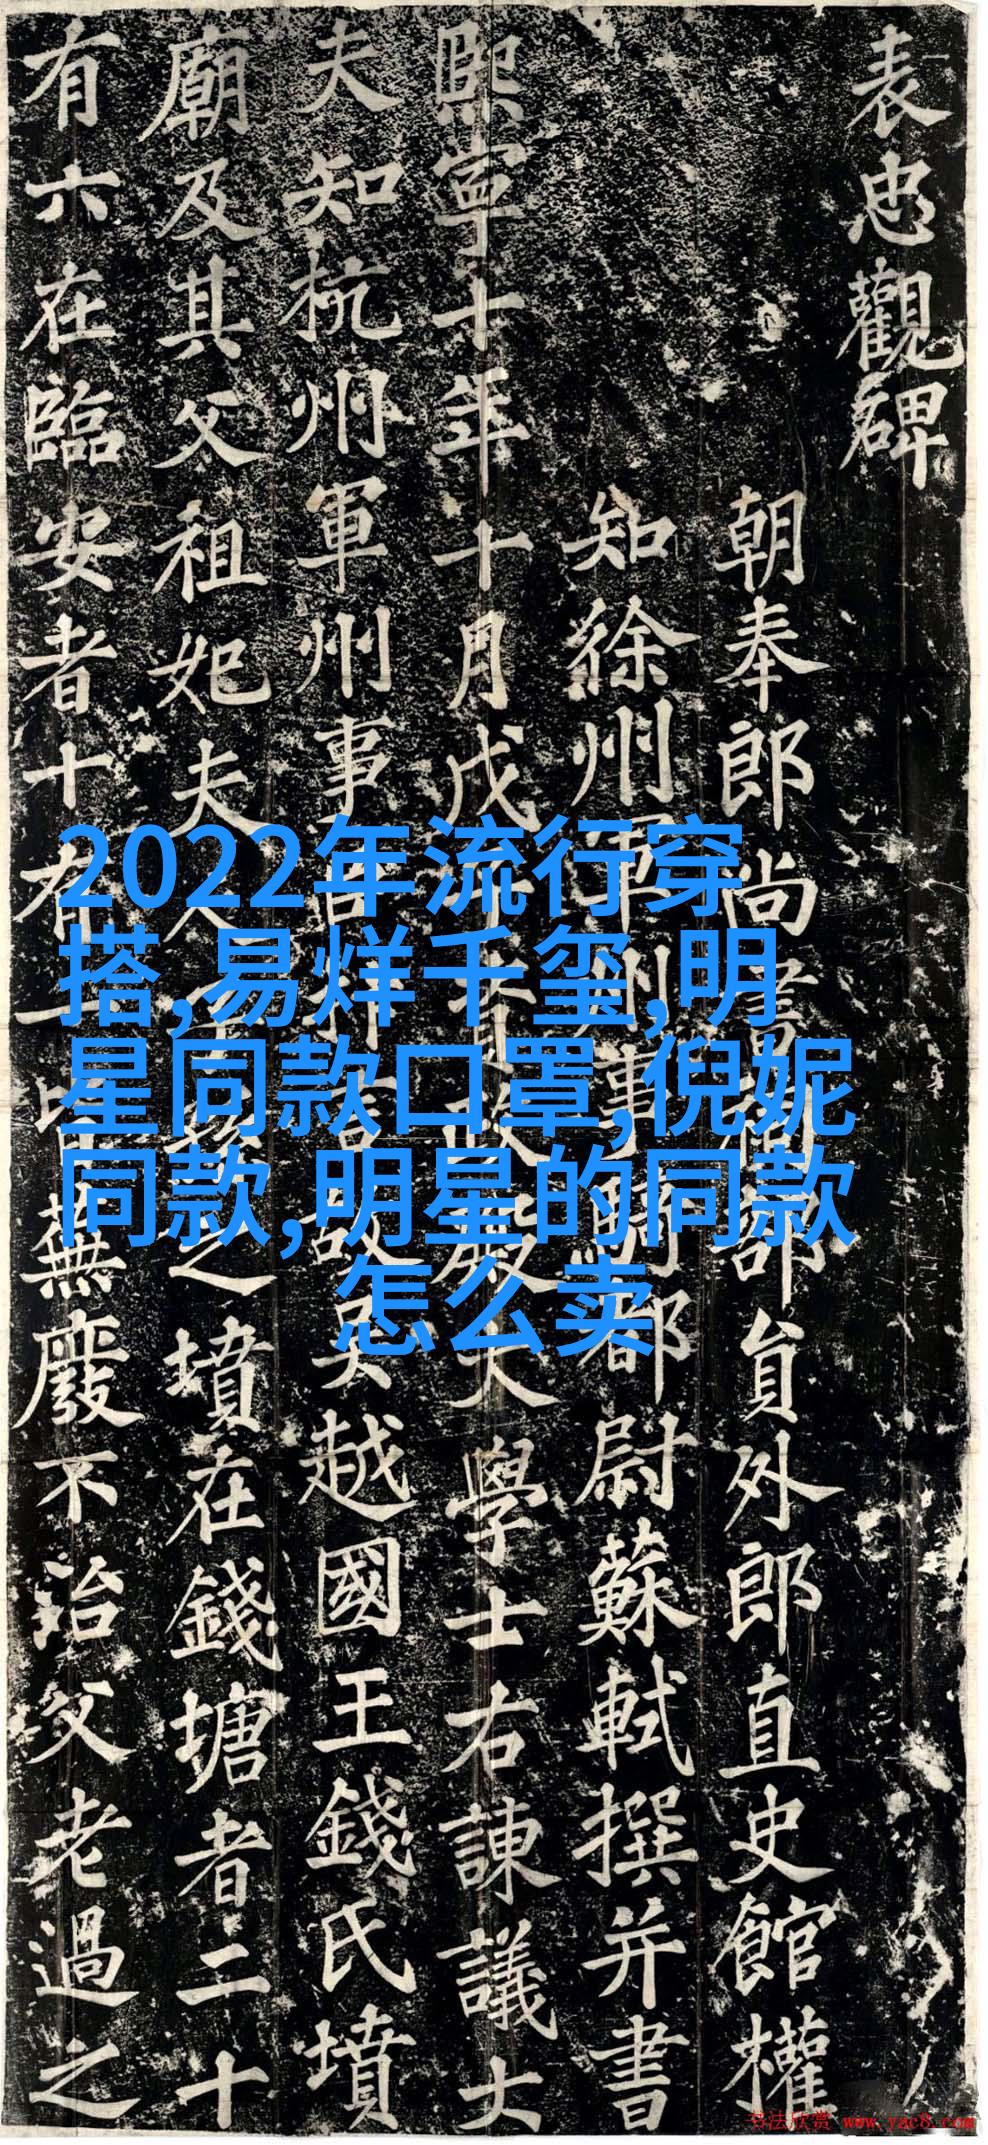 表忠觀碑
朝奉郎尚書祠部員外郎直史館權
知徐州軍州事騎都尉蘇軾撰并書
熙寧十年十月戊子資政殿大學士右諫議大
夫知杭州軍州事臣抃言故吳越國王錢氏墳
廟及其父祖妃夫人子孫之墳在錢塘者二十
有六在臨安者十有一皆蕪廢不治父老過之
2022年流行穿
搭,易烊千玺,明
星同款口罩,倪妮
同款,明星的同款
怎么卖
书法欣赏 www.yac8.com